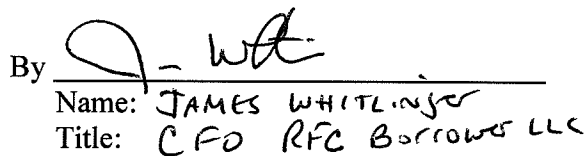 By
Name: JAMES WHITLINger
Title: CFO RFC Borrower LLC